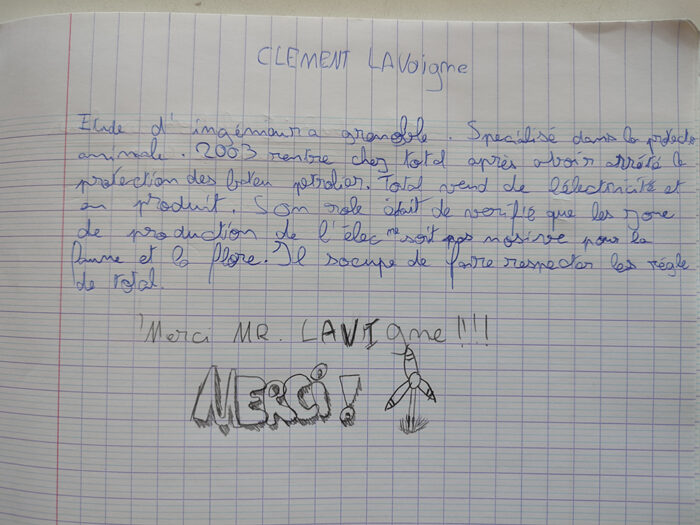 CLEMENT LAVoigne
Etude d'ingémeur a grenoble. Specialisé dans la protect
animale. 2003 rentre chez total après avoir arrété la
protection des bateu petrolier. Total vend de l'électricité et
en produit. Son role était de verifié que les zone
de production de l'élec ne soit pas nosive pour la
faune et la flore. Il s'ocupe de faire respecter les régle
de total.
Merci MR. LAVIgne!!!!
MERCI!